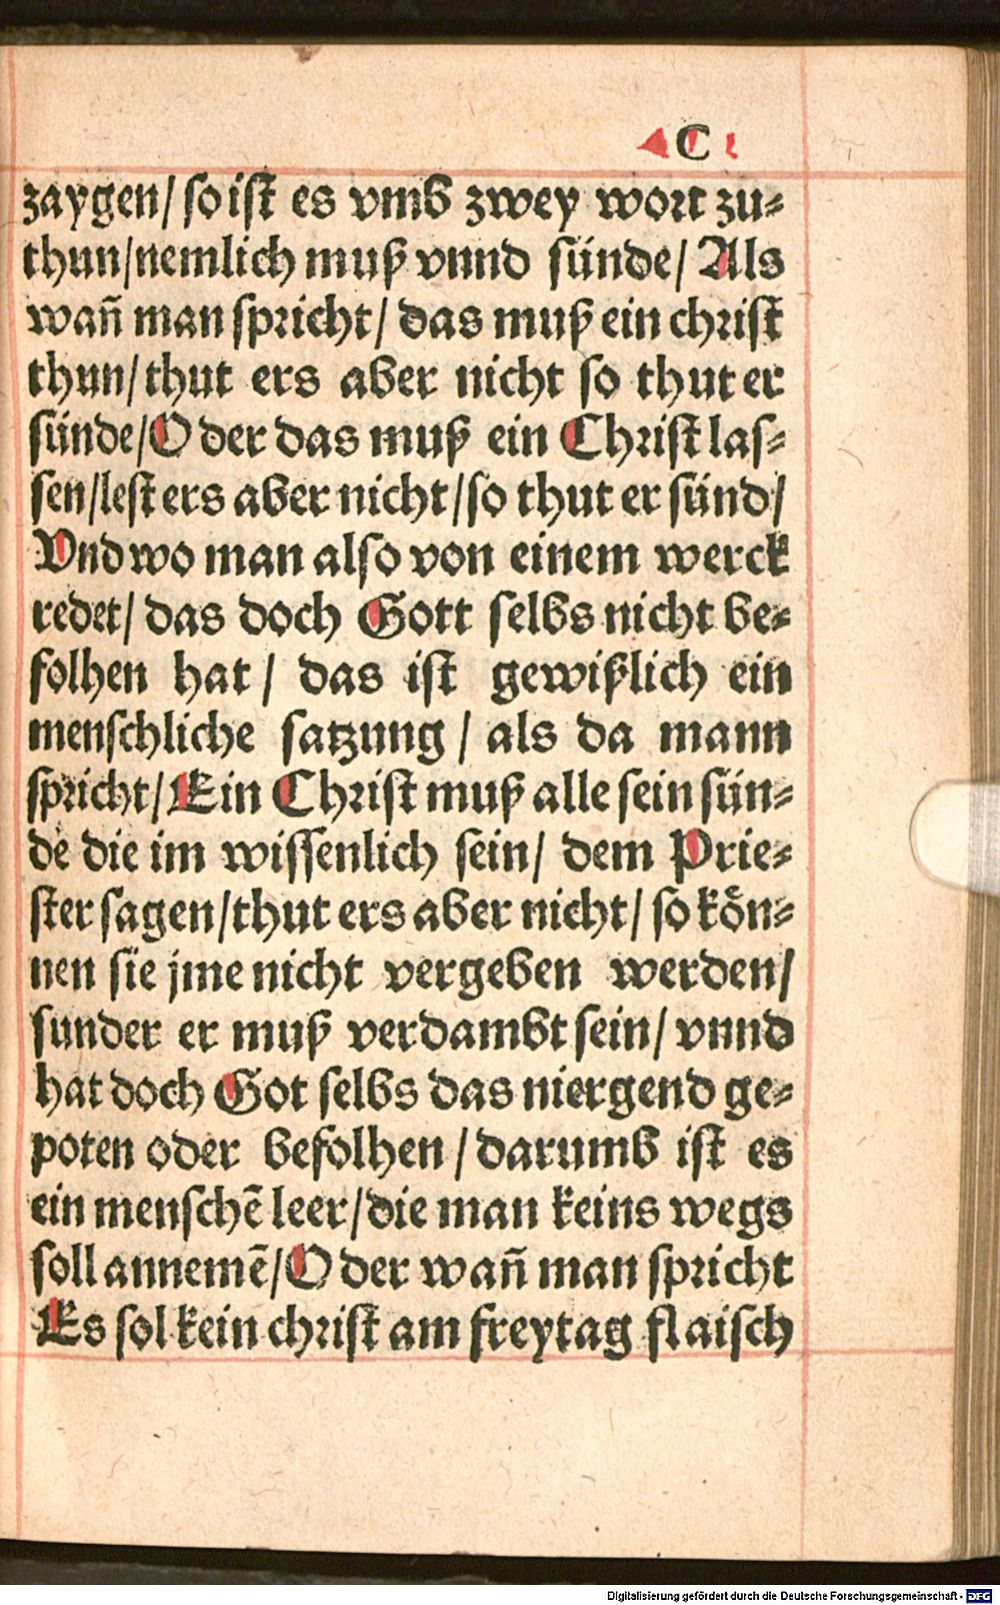 C
zaygen/ so ist es vmb zwey wort zu⸗
thun/nemlich muß vnnd sünde/ Als
wañ man spricht/ das muß ein christ
thun/thut ers aber nicht so thut er
sünde/Oder das muß ein Christ las⸗
sen/lest ers aber nicht/so thut er sünd/
Vnd wo man also von einem werck
redet/ das doch Gott selbs nicht be⸗
folhen hat/ das ist gewißlich ein
menschliche satzung/ als da mann
spricht/Ein Christ muß alle sein sün⸗
dē die im wissenlich sein/ dem Prie⸗
ster sagen/thut ers aber nicht/ so kön⸗
nen sie jme nicht vergeben werden/
sunder er muß verdambt sein/ vnnd
hat doch Got selbs das niergend ge⸗
poten oder befolhen/darumb ist es
ein menschē leer/die man keins wegs
soll annemē/Oder wañ man spricht
Es sol kein christ am freytag flaisch
Digitalisierung gefördert durch die Deutsche Forschungsgemeinschaft - DFG